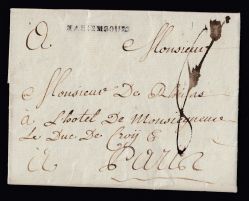 A Monsieur
Monsieur De
à L'hotel De Monseigneur
Le Duc De Croÿ &
à Paris